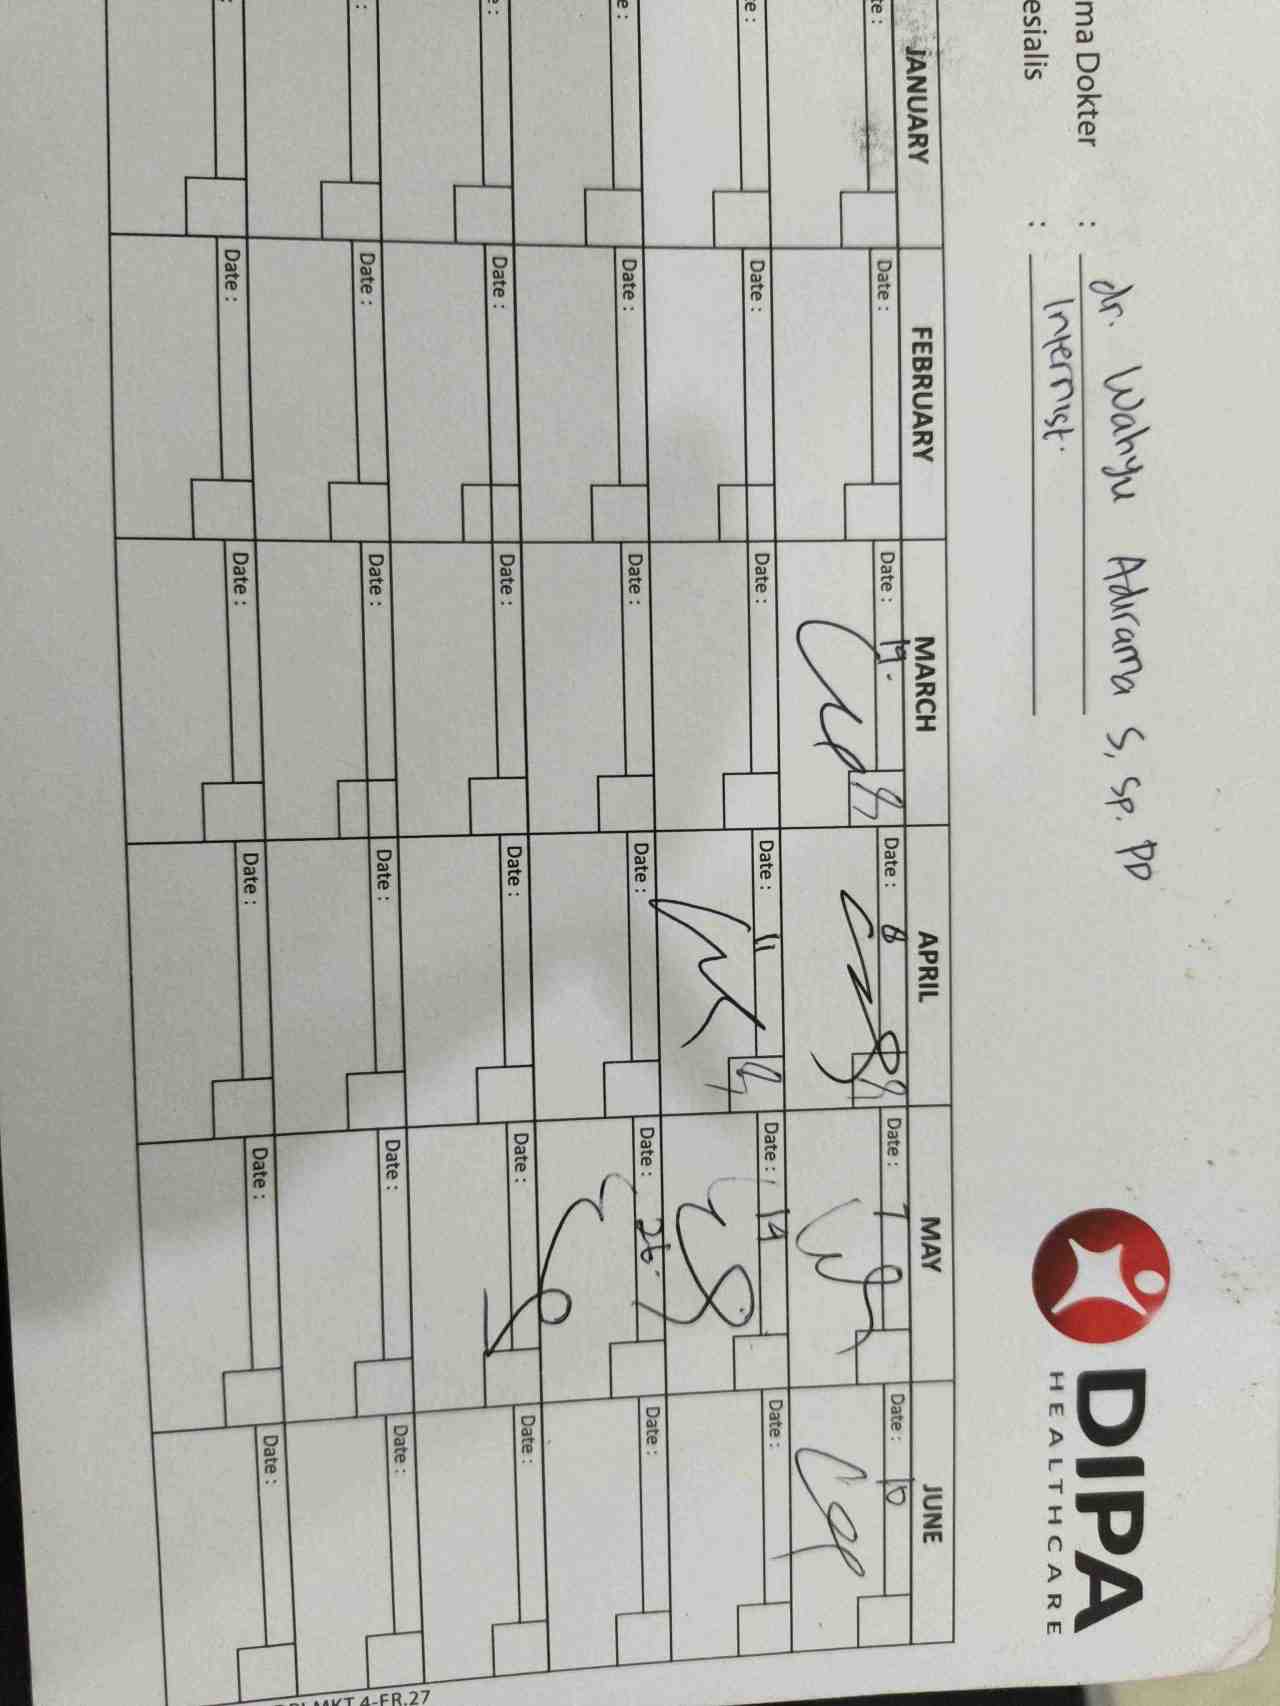 DIPA
HEALTHCARE
ma Dokter : dr. Wahyu Adirama S, Sp. PD
esialis : Internist.
JANUARY FEBRUARY MARCH APRIL MAY JUNE
te : Date : Date : 19. Date : 8 Date : 7 Date : 10
e : Date : Date : Date : 11 Date : 14 Date :
e : Date : Date : Date : Date : 26. Date :
e : Date : Date : Date : Date : Date :
: Date : Date : Date : Date : Date :
: Date : Date : Date : Date : Date :
MKT 4-FR.27